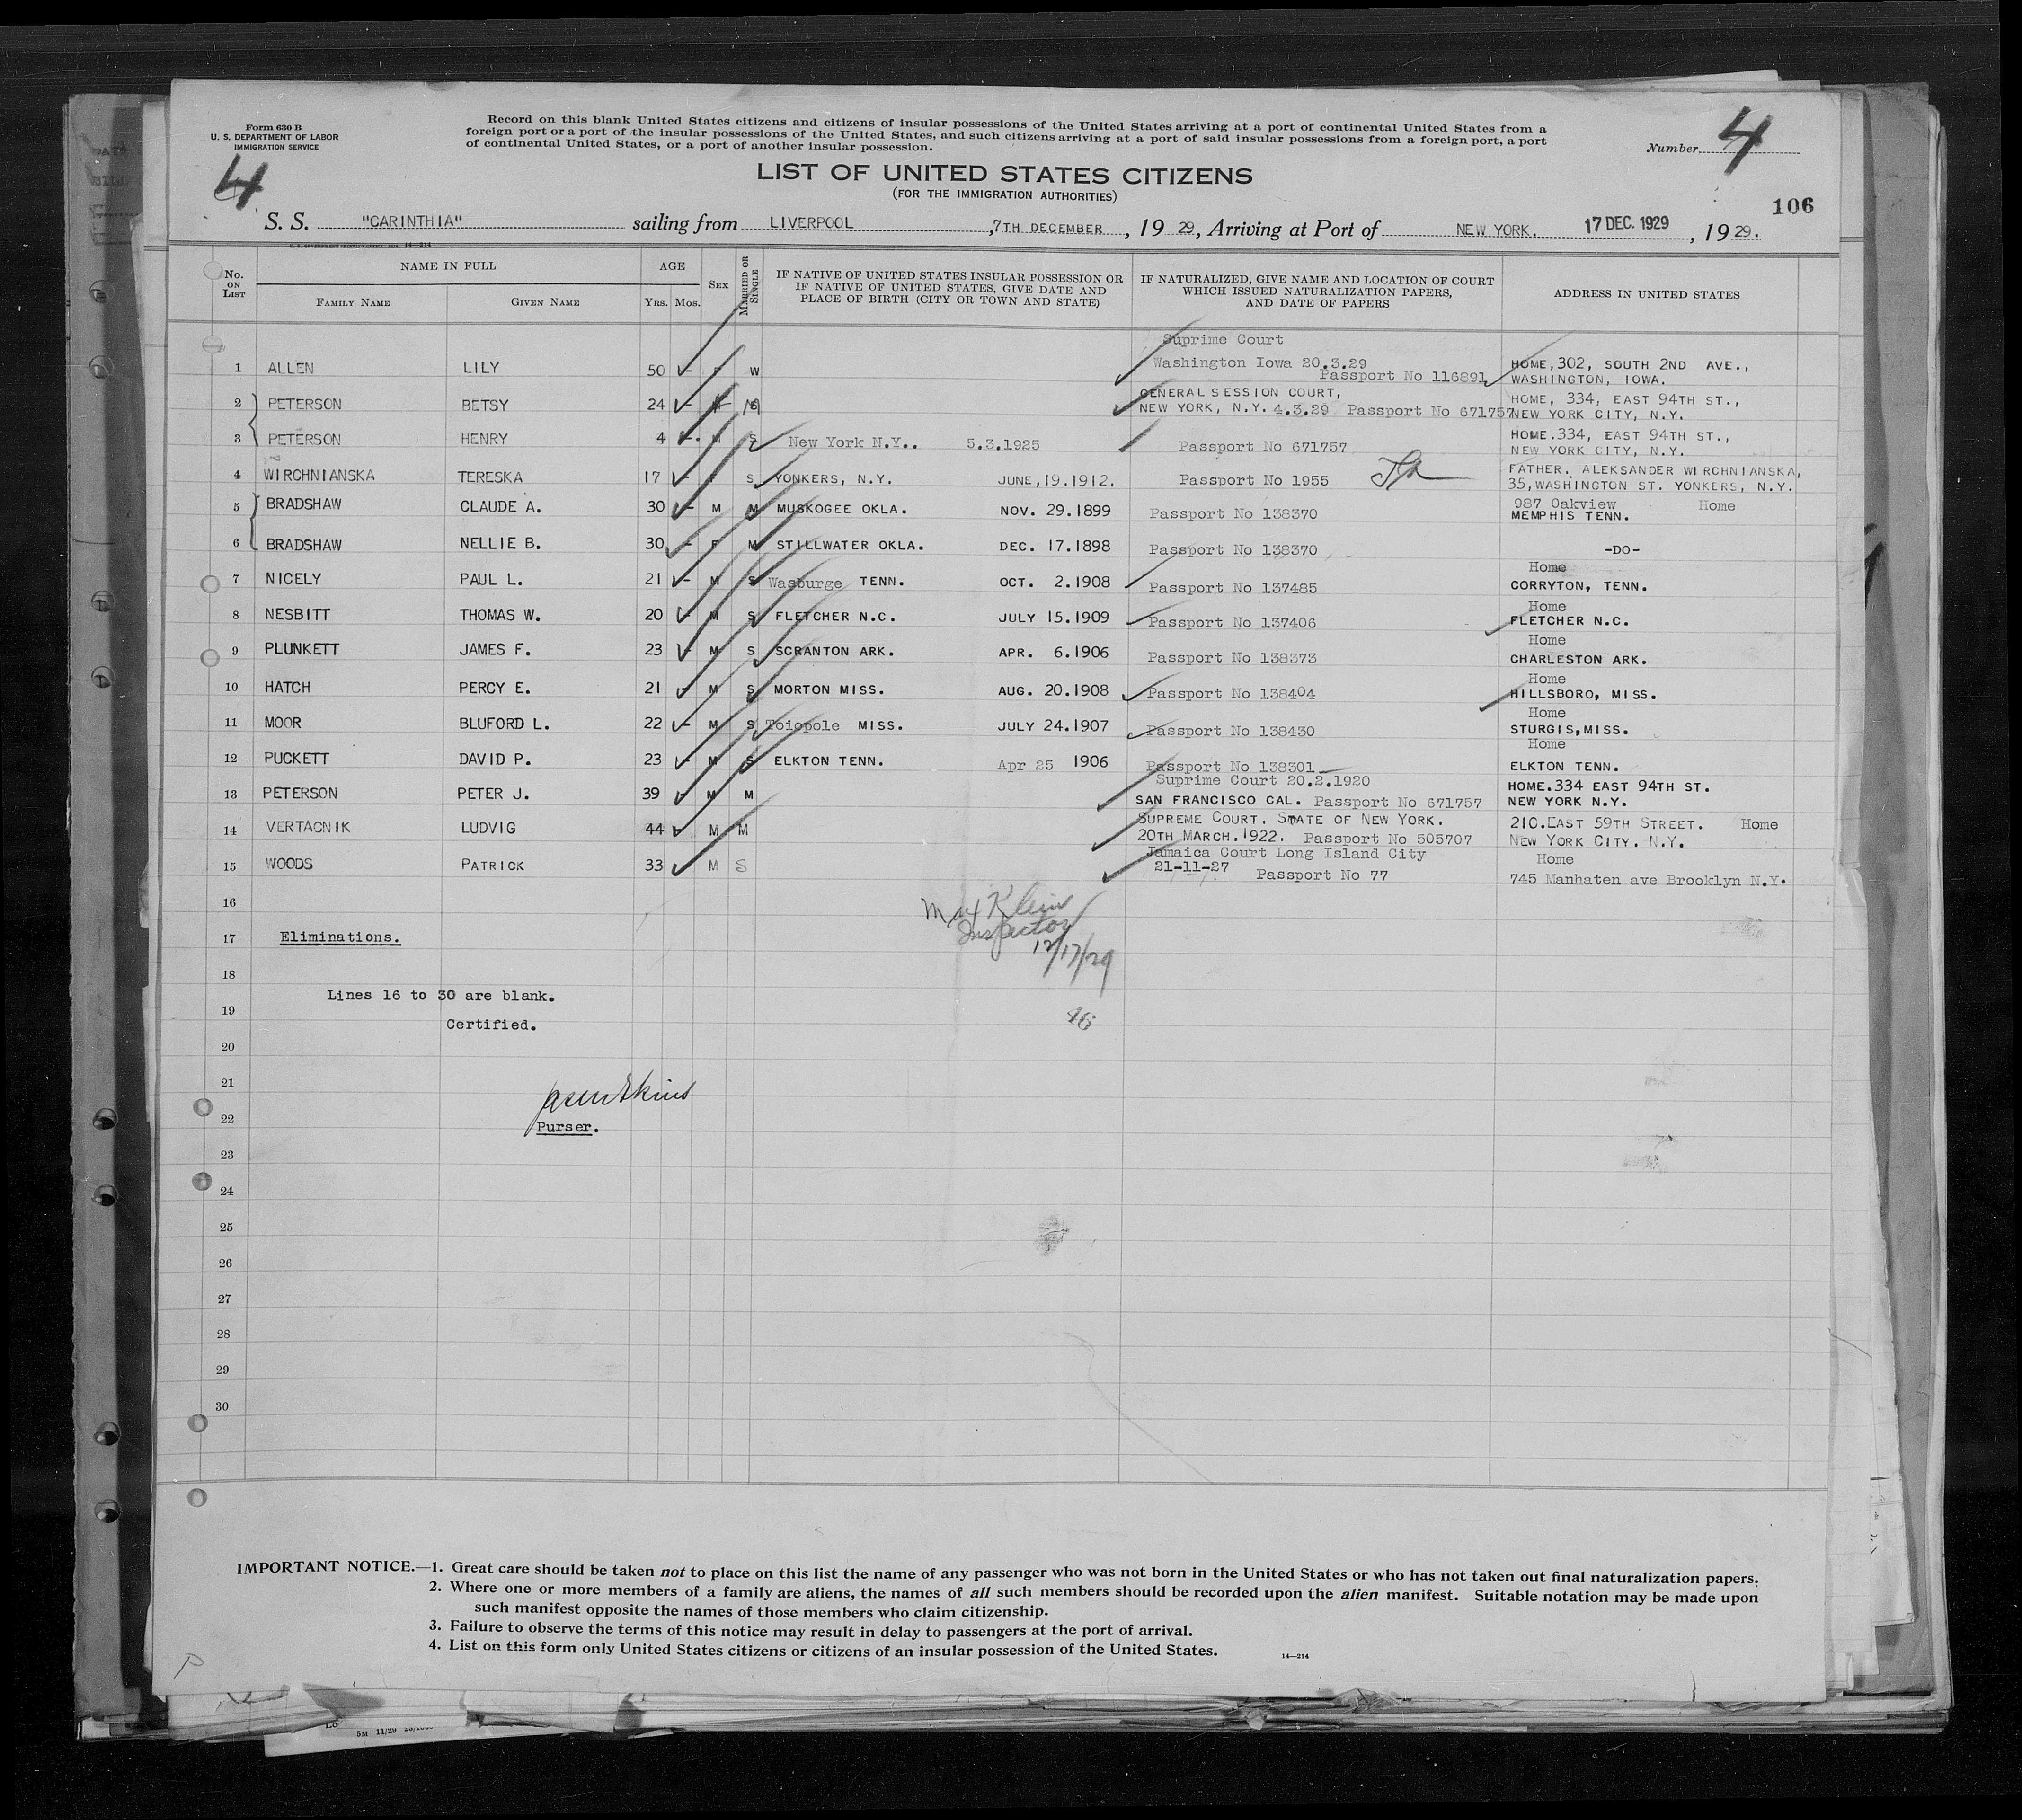 Form 630 B
U. S. DEPARTMENT OF LABOR
IMMIGRATION SERVICE
Record on this blank United States citizens and citizens of insular possessions of the United States arriving at a port of continental United States from a
foreign port or a port of the insular possessions of the United States, and such citizens arriving at a port of said insular possessions from a foreign port, a port
of continental United States, or a port of another insular possession.
Number 4
4
LIST OF UNITED STATES CITIZENS
(FOR THE IMMIGRATION AUTHORITIES)
106
S. S. "CARINTHIA" sailing from LIVERPOOL, 7TH DECEMBER, 19 29, Arriving at Port of NEW YORK. 17 DEC. 1929, 19 29.
No. ON LIST
NAME IN FULL
FAMILY NAME GIVEN NAME
AGE
YRS. MOS.
SEX
MARRIED OR SINGLE
IF NATIVE OF UNITED STATES INSULAR POSSESSION OR
IF NATIVE OF UNITED STATES, GIVE DATE AND
PLACE OF BIRTH (CITY OR TOWN AND STATE)
IF NATURALIZED, GIVE NAME AND LOCATION OF COURT
WHICH ISSUED NATURALIZATION PAPERS,
AND DATE OF PAPERS
ADDRESS IN UNITED STATES
Suprime Court
1 ALLEN LILY 50 - F W Washington Iowa 20.3.29 HOME, 302, SOUTH 2ND AVE.,
Passport No 116891 WASHINGTON, IOWA.
GENERAL SESSION COURT, HOME, 334, EAST 94TH ST.,
2 PETERSON BETSY 24 - M NEW YORK, N.Y. 4.3.29 Passport No 671757 NEW YORK CITY, N.Y.
3 PETERSON HENRY 4 - M S New York N.Y.. 5.3.1925 Passport No 671757 HOME.334, EAST 94TH ST.,
NEW YORK CITY, N.Y.
4 WIRCHNIANSKA TERESKA 17 - F S YONKERS, N.Y. JUNE, 19.1912. Passport No 1955 FATHER. ALEKSANDER WIRCHNIANSKA,
35, WASHINGTON ST. YONKERS, N.Y.
5 BRADSHAW CLAUDE A. 30 - M M MUSKOGEE OKLA. NOV. 29.1899 Passport No 138370 987 Oakview Home
MEMPHIS TENN.
6 BRADSHAW NELLIE B. 30 - F M STILLWATER OKLA. DEC. 17.1898 Passport No 138370 -DO-
Home
7 NICELY PAUL L. 21 - M S Wasburge TENN. OCT. 2.1908 Passport No 137485 CORRYTON, TENN.
Home
8 NESBITT THOMAS W. 20 - M S FLETCHER N.C. JULY 15.1909 Passport No 137406 FLETCHER N.C.
Home
9 PLUNKETT JAMES F. 23 - M S SCRANTON ARK. APR. 6.1906 Passport No 138373 CHARLESTON ARK.
Home
10 HATCH PERCY E. 21 - M S MORTON MISS. AUG. 20.1908 Passport No 138404 HILLSBORO, MISS.
Home
11 MOOR BLUFORD L. 22 - M S Toiopole MISS. JULY 24.1907 Passport No 138430 STURGIS, MISS.
Home
12 PUCKETT DAVID P. 23 - M S ELKTON TENN. Apr 25 1906 Passport No 138301 ELKTON TENN.
Suprime Court 20.2.1920 HOME.334 EAST 94TH ST.
13 PETERSON PETER J. 39 - M M SAN FRANCISCO CAL. Passport No 671757 NEW YORK N.Y.
SUPREME COURT. STATE OF NEW YORK. 210.EAST 59TH STREET. Home
14 VERTACNIK LUDVIG 44 M M 20TH MARCH.1922. Passport No 505707 NEW YORK CITY. N.Y.
Jamaica Court Long Island City Home
15 WOODS PATRICK 33 M S 21-11-27 Passport No 77 745 Manhaten ave Brooklyn N.Y.
16 Max Klein
Inspector
17 Eliminations. 12/17/29
18
Lines 16 to 30 are blank.
19 46
Certified.
20
21
22
Purser.
23
24
25
26
27
28
29
30
IMPORTANT NOTICE.—1. Great care should be taken not to place on this list the name of any passenger who was not born in the United States or who has not taken out final naturalization papers.
2. Where one or more members of a family are aliens, the names of all such members should be recorded upon the alien manifest. Suitable notation may be made upon
such manifest opposite the names of those members who claim citizenship.
3. Failure to observe the terms of this notice may result in delay to passengers at the port of arrival.
4. List on this form only United States citizens or citizens of an insular possession of the United States.
14—214
P
5M 11/29